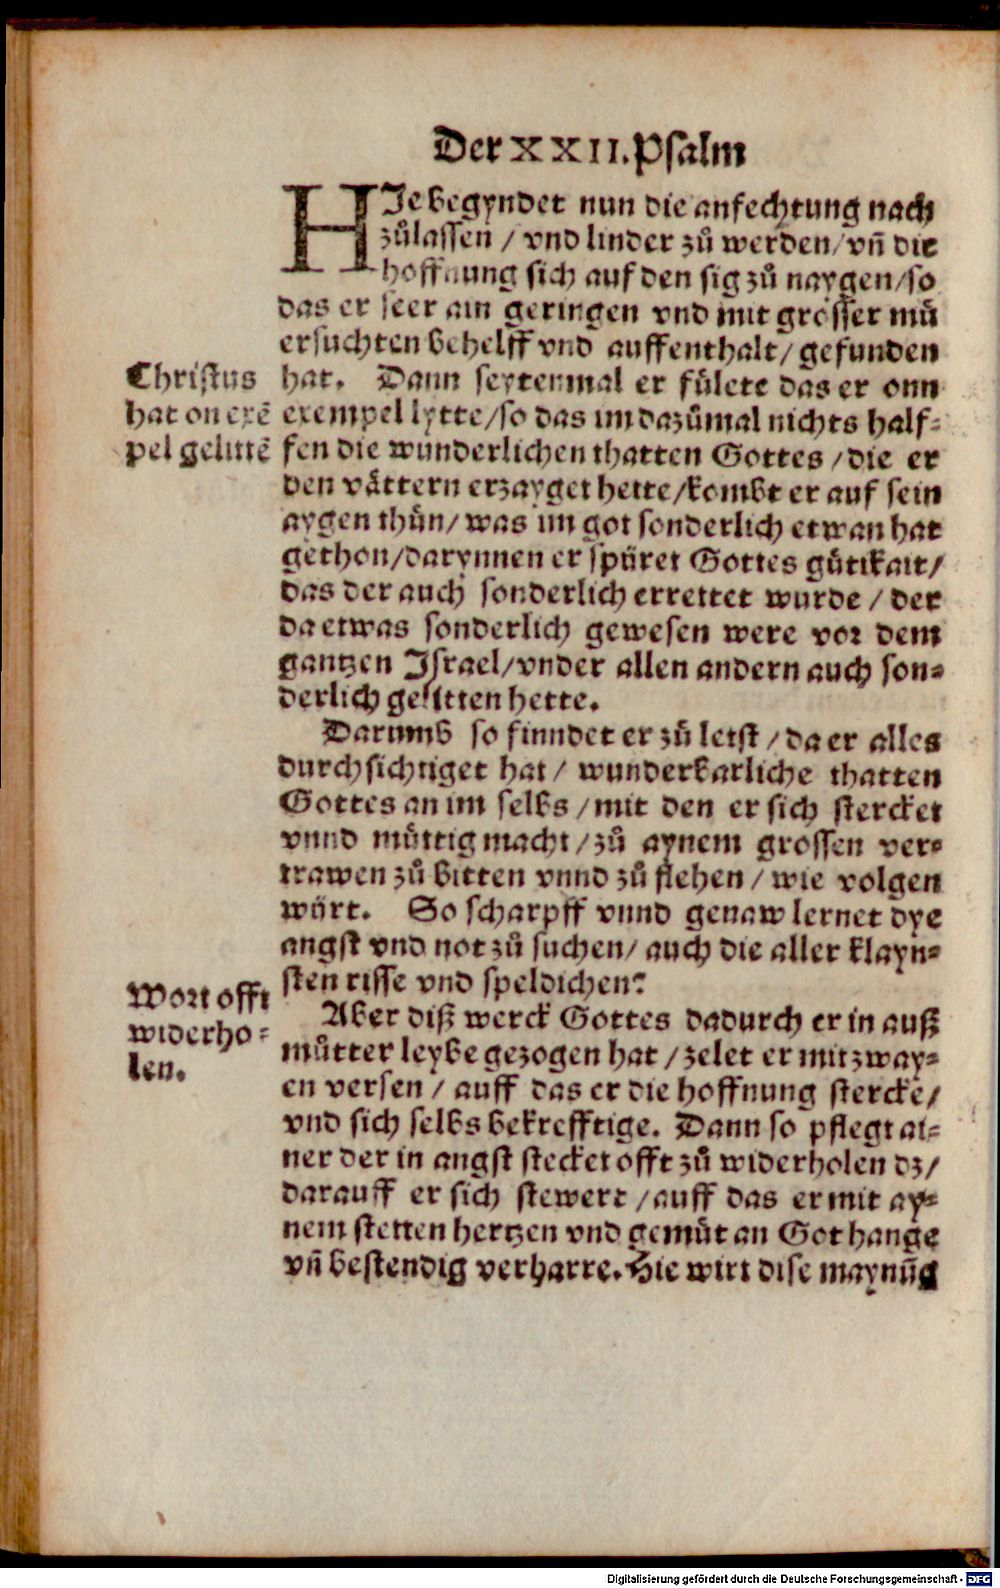 Der XXII. Psalm
HJe begyndet nun die anfechtung nach
zůlassen / vnd linder zů werden / vñ die
hoffnung sich auf den sig zů naygen / so
das er seer ain geringen vnd mit grosser mü
ersuchten behelff vnd auffenthalt / gefunden
hat. Dann seytenmal er fülete das er onn
exempel lytte / so das im dazůmal nichts half-
fen die wunderlichen thatten Gottes / die er
den vättern erzayget hette / kombt er auf sein
aygen thůn / was im got sonderlich etwan hat
gethon / darynnen er spüret Gottes gůtikait /
das der auch sonderlich errettet wurde / der
da etwas sonderlich gewesen were vor dem
gantzen Jsrael / vnder allen andern auch son-
derlich gelitten hette.
Christus
hat on exē
pel gelittē
Darumb so finndet er zů letst / da er alles
durchsichtiget hat / wunderbarliche thatten
Gottes an im selbs / mit den er sich stercket
vnnd můttig macht / zů aynem grossen ver-
trawen zů bitten vnnd zů flehen / wie volgen
würt. So scharpff vnnd genaw lernet dye
angst vnd not zů suchen / auch die aller klayn-
sten risse vnd speldichen:
Aber diß werck Gottes dadurch er in auß
můtter leybe gezogen hat / zelet er mit zway-
en versen / auff das er die hoffnung stercke /
vnd sich selbs bekrefftige. Dann so pflegt ai-
ner der in angst stecket offt zů widerholen dz /
darauff er sich stewert / auff das er mit ay-
nem stetten hertzen vnd gemůt an Got hange
vñ bestendig verharre. Hie wirt dise maynūg
Wort offt
widerho-
len.
Digitalisierung gefördert durch die Deutsche Forschungsgemeinschaft - DFG